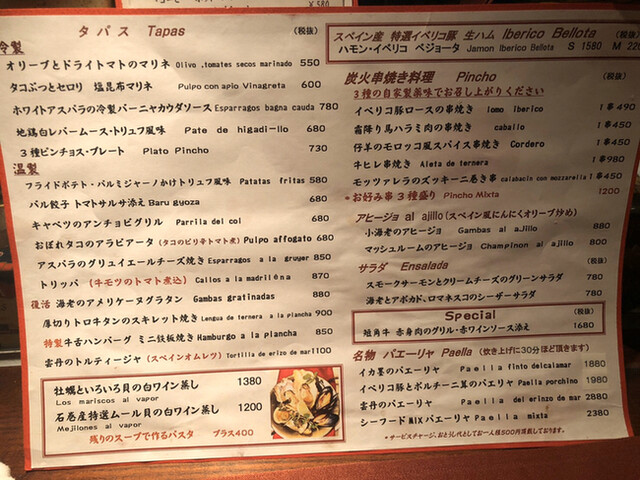 ¥580
タパス Tapas （税抜）
冷製
オリーブとドライトマトのマリネ Olivo ,tomates secos marinado 550
タコぶつとセロリ 塩昆布マリネ Pulpo con apio Vinagreta 600
ホワイトアスパラの冷製バーニャカウダソース Esparragos bagna cauda 780
地鶏白レバームース・トリュフ風味 Pate de higadi-llo 680
3種ピンチョス・プレート Plato Pincho 730
温製
フライドポテト・パルミジャーノかけトリュフ風味 Patatas fritas 580
バル餃子 トマトサルサ添え Baru gyoza 680
キャベツのアンチョビグリル Parrila del col 680
おぼれタコのアラビアータ（タコのピリ辛トマト煮）Pulpo affogato 680
アスパラのグリュイエールチーズ焼き Esparragos a la gruyer 850
トリッパ （牛モツのトマト煮込） Callos a la madrilena 870
復活 海老のアメリケーヌグラタン Gambas gratinadas 880
厚切りトロ牛タンのスキレット焼き Lengua de ternera a la plancha 900
特製 牛舌ハンバーグ ミニ鉄板焼き Hamburgo a la plancha 850
雲丹のトルティージャ（スペインオムレツ）Tortilla de erizo de mar 1100
牡蠣といろいろ貝の白ワイン蒸し 1380
Los mariscos al vapor
石巻産特選ムール貝の白ワイン蒸し 1200
Mejilones al vapor
残りのスープで作るパスタ プラス400
スペイン産 特選イベリコ豚 生ハム Iberico Bellota （税抜）
ハモン・イベリコ ベジョータ Jamon Iberico Bellota S 1580 M 220
炭火串焼き料理 Pincho （税抜）
3種の自家製薬味でお召し上がりください
イベリコ豚ロースの串焼き lomo iberico 1串490
霜降り馬ハラミ肉の串焼き caballo 1串450
仔羊のモロッコ風スパイス串焼き Cordero 1串450
牛ヒレ串焼き Aleta de ternera 1串980
モッツァレラのズッキーニ巻き串 calabacin con mozzarella 1串450
*お好み串3種盛り Pincho Mixta 1200
アヒージョ al ajillo（スペイン風にんにくオリーブ炒め）
小海老のアヒージョ Gambas al aJillo 880
マッシュルームのアヒージョ Champinon al ajillo 800
サラダ Ensalada （税抜）
スモークサーモンとクリームチーズのグリーンサラダ 780
海老とアボカド、ロマネスコのシーザーサラダ 780
Special （税抜）
短角牛 赤身肉のグリル・赤ワインソース添え 1680
名物 パエーリャ Paella （炊き上げに30分ほど頂きます） （税抜）
イカ墨のパエーリャ Paella finto delcalamar 1880
イベリコ豚とポルチーニ茸のパエーリャ Paella porchino 1980
雲丹のパエーリャ Paella del erinzo de mar 2880
シーフードMIXパエーリャ Paella mixta 2380
*サービスチャージ、おとうし代としてお一人様500円頂戴しております。